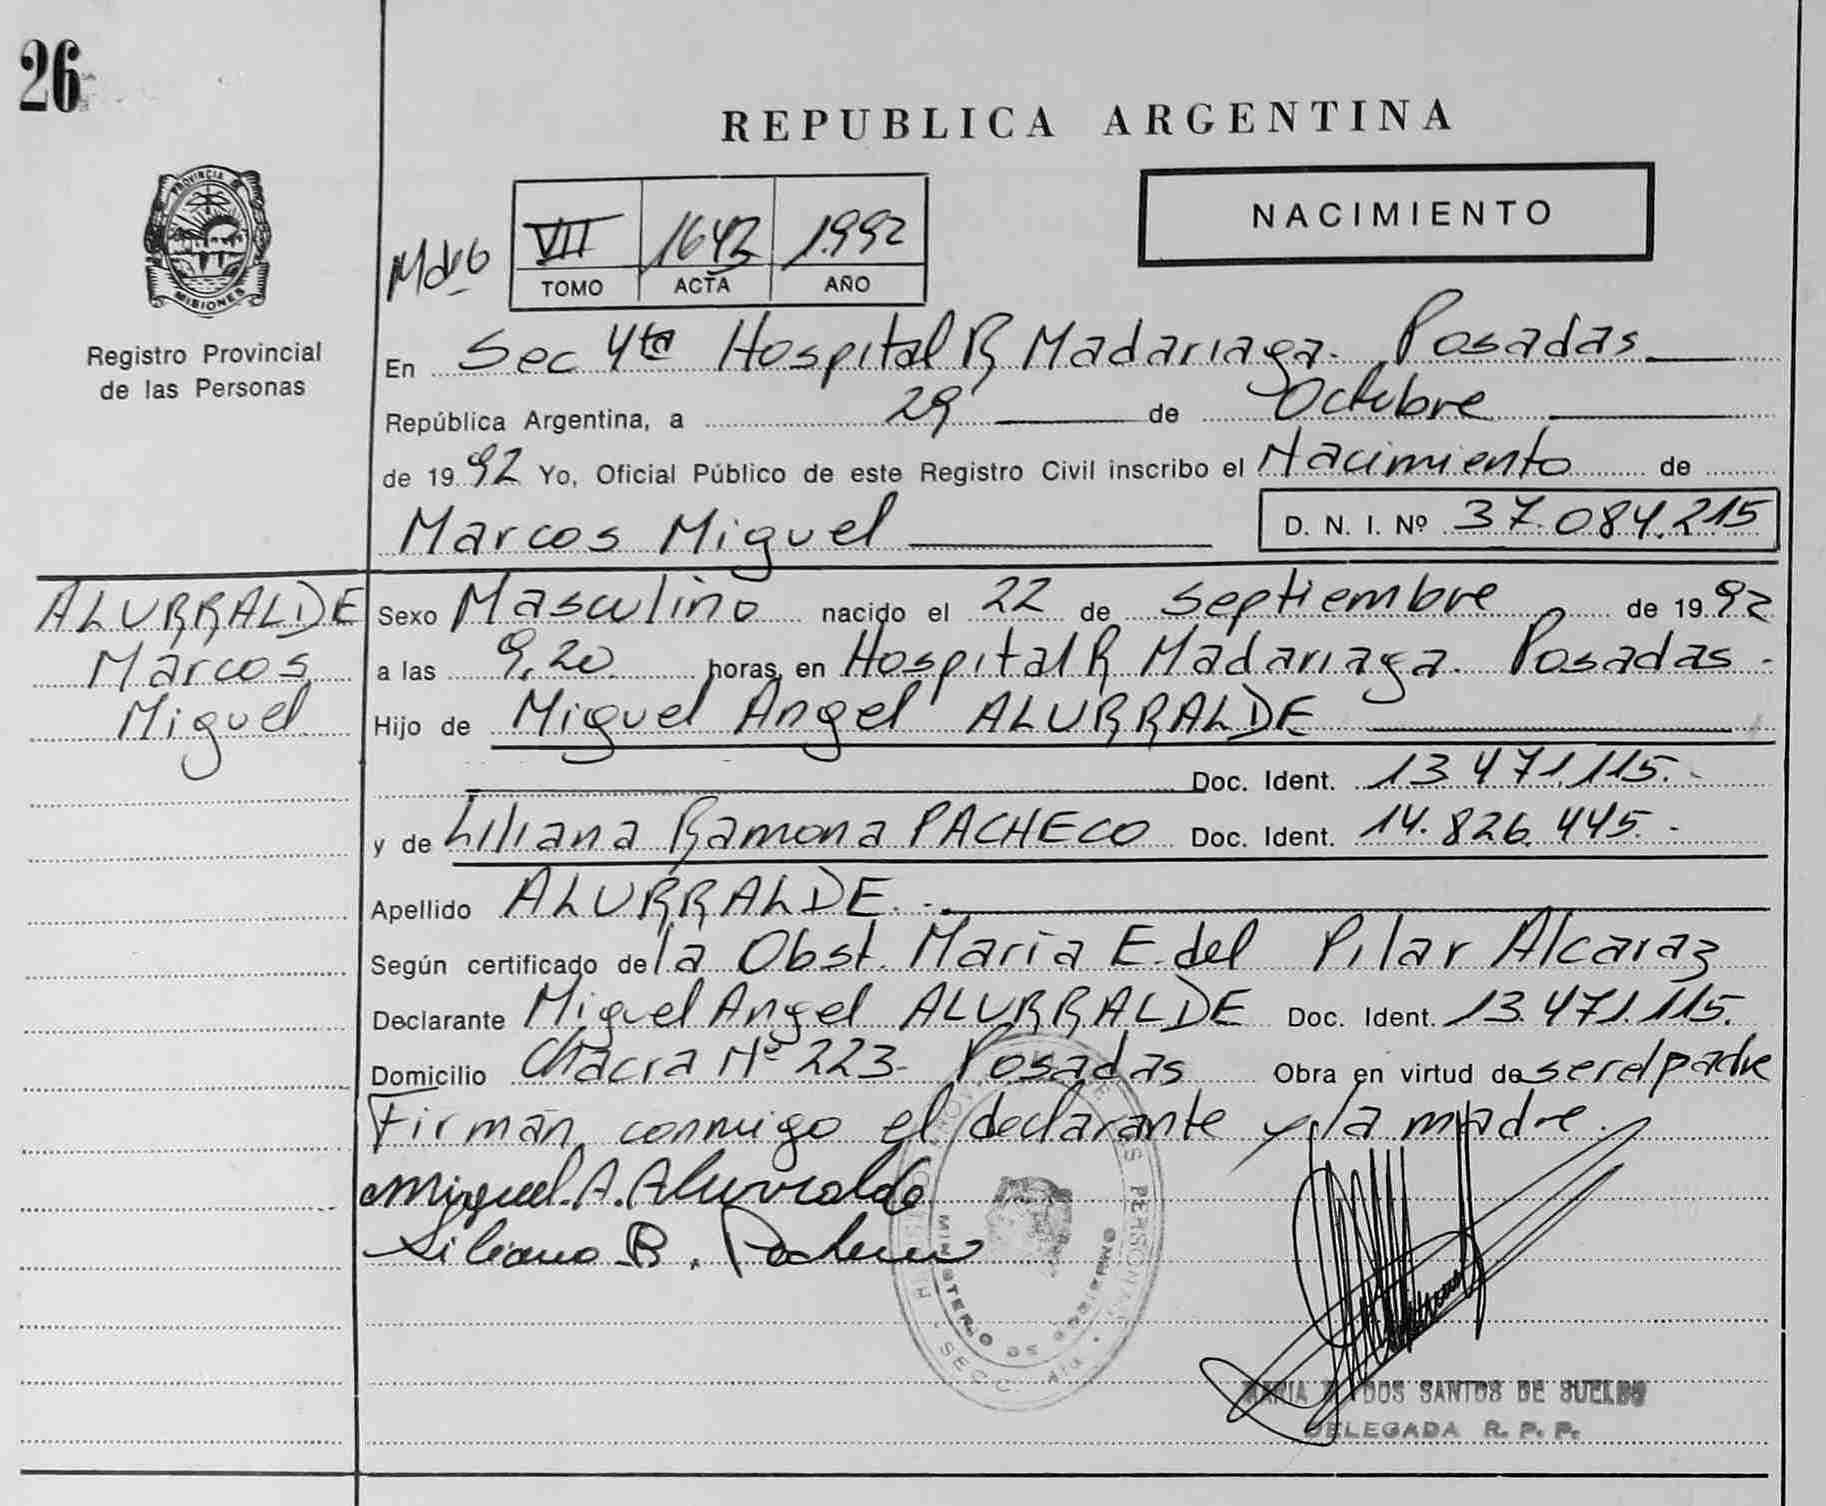 26
REPUBLICA ARGENTINA
NACIMIENTO
PROVINCIA DE
MISIONES
Registro Provincial
de las Personas
VII 1643 1.992
TOMO ACTA AÑO
En Sec 4ta Hospital R Madariaga. Posadas
República Argentina, a 29 de Octubre
de 1992 Yo, Oficial Público de este Registro Civil inscribo el Nacimiento de
Marcos Miguel D. N. I. Nº 37.084.215
ALURRALDE
Marcos
Miguel
Sexo Masculino nacido el 22 de Septiembre de 1992
a las 9,20 horas, en Hospital R Madariaga. Posadas.
Hijo de Miguel Angel ALURRALDE
Doc. Ident. 13.471.115.-
y de Liliana Ramona PACHECO Doc. Ident. 14.826.445.-
Apellido ALURRALDE.-
Según certificado de la Obst. Maria E. del Pilar Alcaraz
Declarante Miguel Angel ALURRALDE Doc. Ident. 13.471.115.
Domicilio Chacra Nº 223- Posadas Obra en virtud de ser el padre
Firman conmigo el declarante y la madre.
Miguel A. Alurralde
Liliana R. Pacheco
MINISTERIO DE GOBIERNO
MARIA DOS SANTOS DE SUELDO
DELEGADA R. P. P.